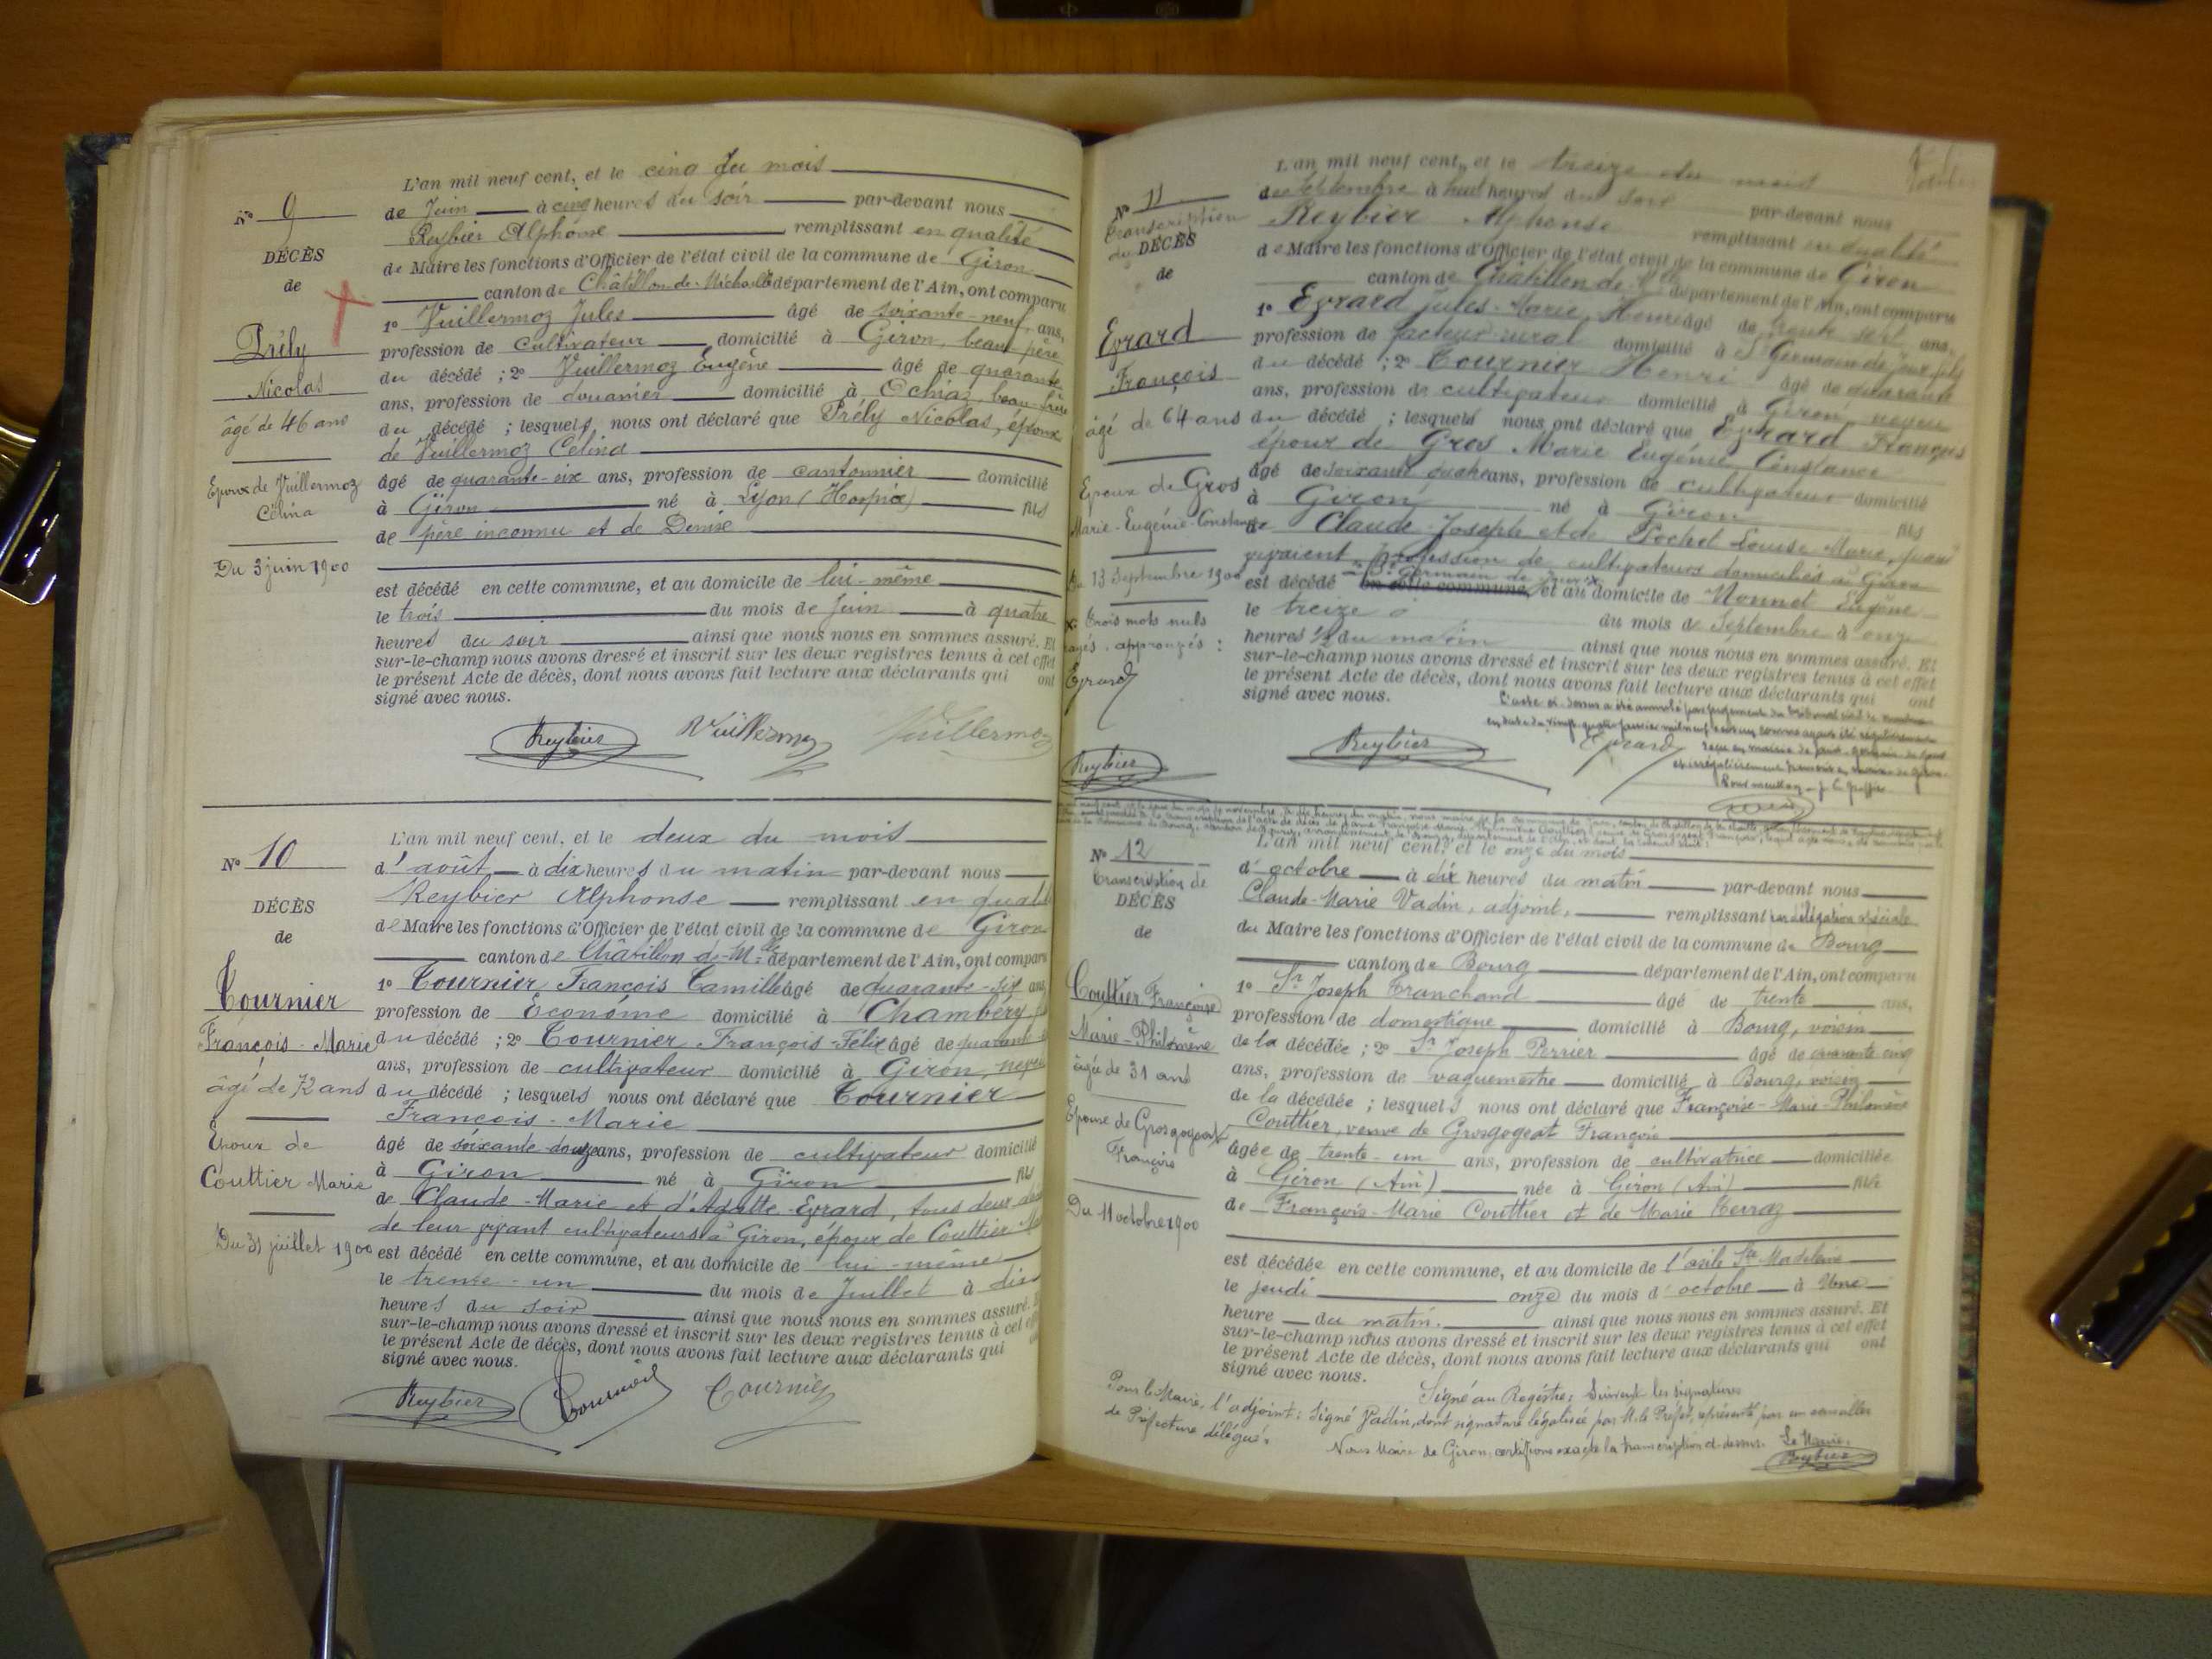 L'an mil neuf cent, et le cinq du mois
N° 9
de Juin à cinq heures du soir par-devant nous
Reybier Alphonse remplissant en qualité
DÉCÈS
de Maire les fonctions d'Officier de l'état civil de la commune de Giron
de
canton de Châtillon-de-Michaille département de l'Ain, ont comparu
1° Vuillermoz Jules âgé de soixante-neuf ans,
Prély
profession de cultivateur domicilié à Giron, beau-père
Nicolas
du décédé ; 2° Vuillermoz Eugène âgé de quarante
âgé de 46 ans
ans, profession de douanier domicilié à Ochiaz, beau-frère
du décédé ; lesquels nous ont déclaré que Prély Nicolas, époux
de Vuillermoz Célina
Epoux de Vuillermoz
Célina
âgé de quarante-six ans, profession de cantonnier domicilié
à Giron né à Lyon (Hospice) fils
de père inconnu et de Denise
Du 3 juin 1900
est décédé en cette commune, et au domicile de lui-même
le trois du mois de Juin à quatre
heures du soir ainsi que nous nous en sommes assuré. Et
sur-le-champ nous avons dressé et inscrit sur les deux registres tenus à cet effet
le présent Acte de décès, dont nous avons fait lecture aux déclarants qui ont
signé avec nous.
Reybier Vuillermoz Vuillermoz
L'an mil neuf cent, et le deux du mois
N° 10
d'août à dix heures du matin par-devant nous
Reybier Alphonse remplissant en qualité
DÉCÈS
de Maire les fonctions d'Officier de l'état civil de la commune de Giron
de
canton de Châtillon-de-M.lle département de l'Ain, ont comparu
1° Tournier François Camille âgé de quarante-six ans
Tournier
profession de Econome domicilié à Chambéry
François-Marie
du décédé ; 2° Tournier François-Félix âgé de quarante
ans, profession de cultivateur domicilié à Giron, neveu
âgé de 72 ans
du décédé ; lesquels nous ont déclaré que Tournier
François-Marie
Epoux de
Couttier Marie
âgé de soixante-douze ans, profession de cultivateur domicilié
à Giron né à Giron fils
de Claude-Marie et d'Agathe Evrard, tous deux
de leur vivant cultivateurs à Giron, époux de Couttier
Du 31 juillet 1900
est décédé en cette commune, et au domicile de lui-même
le trente-un du mois de Juillet à dix
heures du soir ainsi que nous nous en sommes assuré.
sur-le-champ nous avons dressé et inscrit sur les deux registres tenus à cet
le présent Acte de décès, dont nous avons fait lecture aux déclarants qui
signé avec nous.
Reybier Tournier Tournier
L'an mil neuf cent, et le treize du mois
N° 11
transcription
du DÉCÈS
de
de Septembre à huit heures du soir par-devant nous
Reybier Alphonse remplissant en qualité
de Maire les fonctions d'Officier de l'état civil de la commune de Giron
canton de Châtillon de M.lle département de l'Ain, ont comparu
1° Evrard Jules-Marie Henri âgé de trente sept ans,
Evrard
François
profession de facteur rural domicilié à St Germain de Joux, fils
du décédé ; 2° Tournier Henri âgé de quarante
ans, profession de cultivateur domicilié à Giron, neveu
âgé de 64 ans
du décédé ; lesquels nous ont déclaré que Evrard François
époux de Gros Marie Eugénie Constance
Epoux de Gros
Marie-Eugénie-Constance
âgé de soixante quatre ans, profession de cultivateur domicilié
à Giron né à Giron fils
de Claude-Joseph et de Pochet Louise Marie, quand
vivaient profession de cultivateurs domiciliés à Giron
Du 13 Septembre 1900
à St Germain de Joux x
est décédé en cette commune, et au domicile de Monnet Eugène
le treize du mois de Septembre à onze
heures 1/2 du matin ainsi que nous nous en sommes assuré. Et
x Trois mots nuls
rayés, approuvés :
Evrard
Reybier
sur-le-champ nous avons dressé et inscrit sur les deux registres tenus à cet effet
le présent Acte de décès, dont nous avons fait lecture aux déclarants qui ont
signé avec nous.
L'acte ci-dessus a été annulé par jugement du tribunal civil de
Reybier Evrard
L'an mil neuf cent, et le onze du mois
N° 12
transcription de
DÉCÈS
de
d'octobre à dix heures du matin par-devant nous
Claude-Marie Vadin, adjoint, remplissant par délégation spéciale
du Maire les fonctions d'Officier de l'état civil de la commune de Bourg
canton de Bourg département de l'Ain, ont comparu
1° Sr Joseph Tranchand âgé de trente ans,
Couttier Françoise
Marie-Philomène
âgée de 31 ans
profession de domestique domicilié à Bourg, voisin
de la décédée ; 2° Sr Joseph Perrier âgé de quarante cinq
ans, profession de vaguemestre domicilié à Bourg, voisin
de la décédée ; lesquels nous ont déclaré que Françoise-Marie-Philomène
Couttier, veuve de Grosgogeat François
Epouse de Grosgogeat
François
âgée de trente-un ans, profession de cultivatrice domiciliée
à Giron (Ain) née à Giron (Ain) fille
de François-Marie Couttier et de Marie Terraz
Du 11 octobre 1900
est décédée en cette commune, et au domicile de l'asile Ste Madeleine
le jeudi onze du mois d'octobre à une
heure du matin. ainsi que nous nous en sommes assuré. Et
sur-le-champ nous avons dressé et inscrit sur les deux registres tenus à cet effet
le présent Acte de décès, dont nous avons fait lecture aux déclarants qui ont
signé avec nous.
Signé au Registre: Suivent les signatures
Pour le Maire, l'adjoint: Signé Vadin, dont signature légalisée par M. le Préfet, représenté par un conseiller
de Préfecture délégué.
Nous Maire de Giron, certifions exacte la transcription ci-dessus. Le Maire,
Reybier